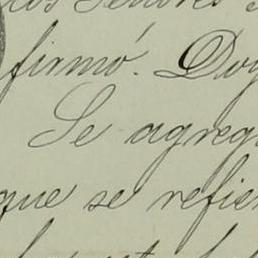 los Señores
firmó. Doy
Se agreg
que se refier